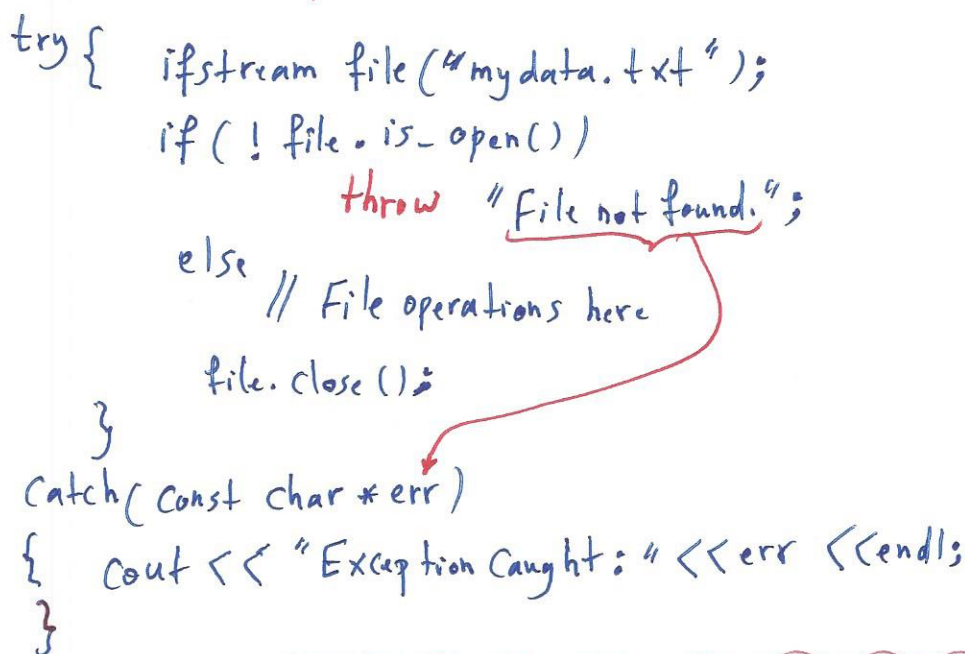 try { ifstream file("mydata.txt");
if ( ! file.is_open())
throw "File not found.";
else
// File operations here
file.close();
}
Catch( Const char * err)
{ Cout << "Exception Caught:" <<err <<endl;
}